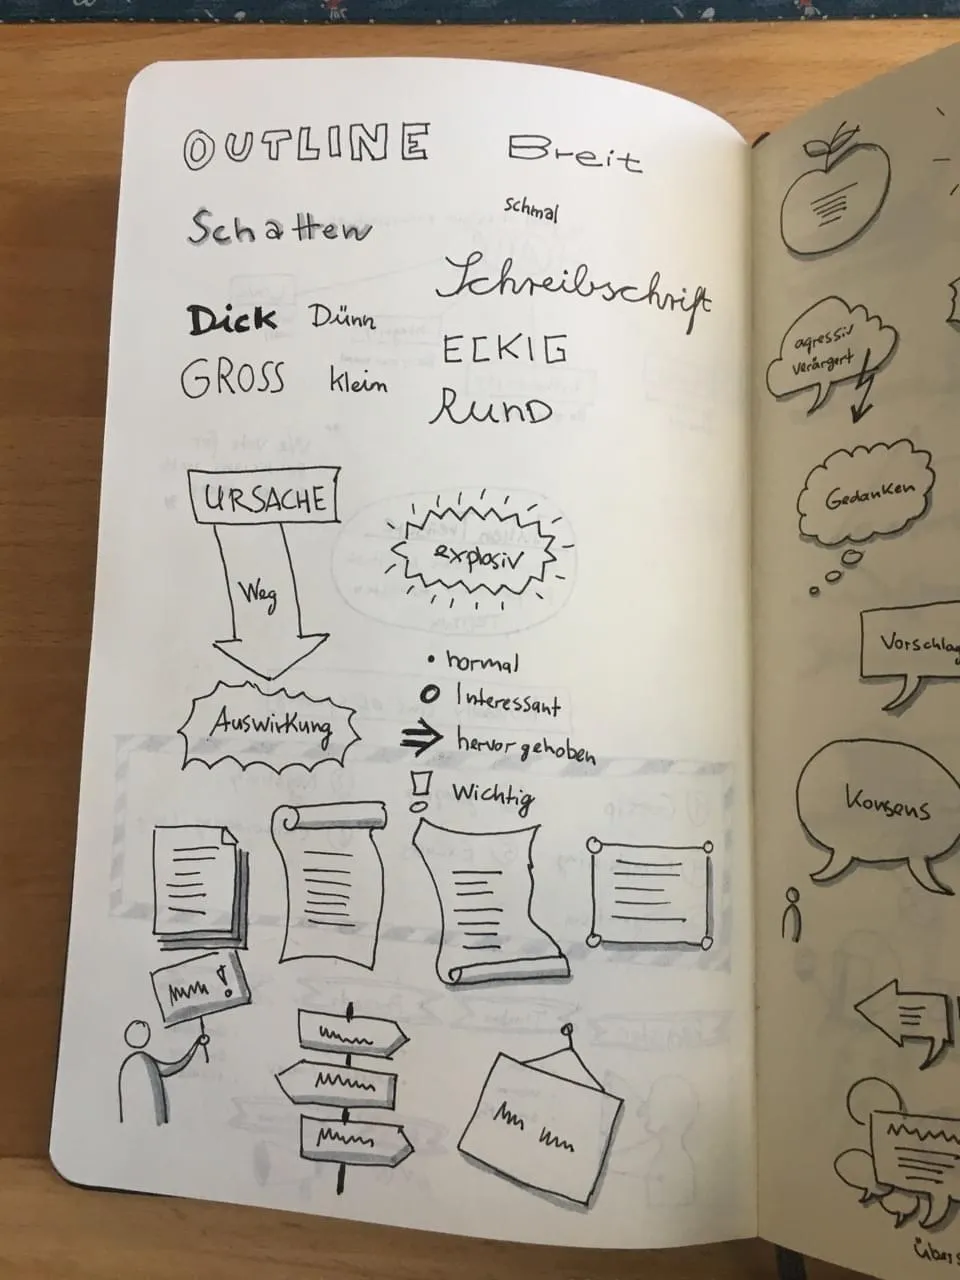 OUTLINE
Breit
Schatten
schmal
Schreibschrift
Dick Dünn
ECKIG
GROSS klein
RUND
URSACHE
Weg
Auswirkung
explosiv
• normal
Interessant
⇒ hervorgehoben
! Wichtig
!
agressiv
verärgert
Gedanken
Vorschlag
Konsens